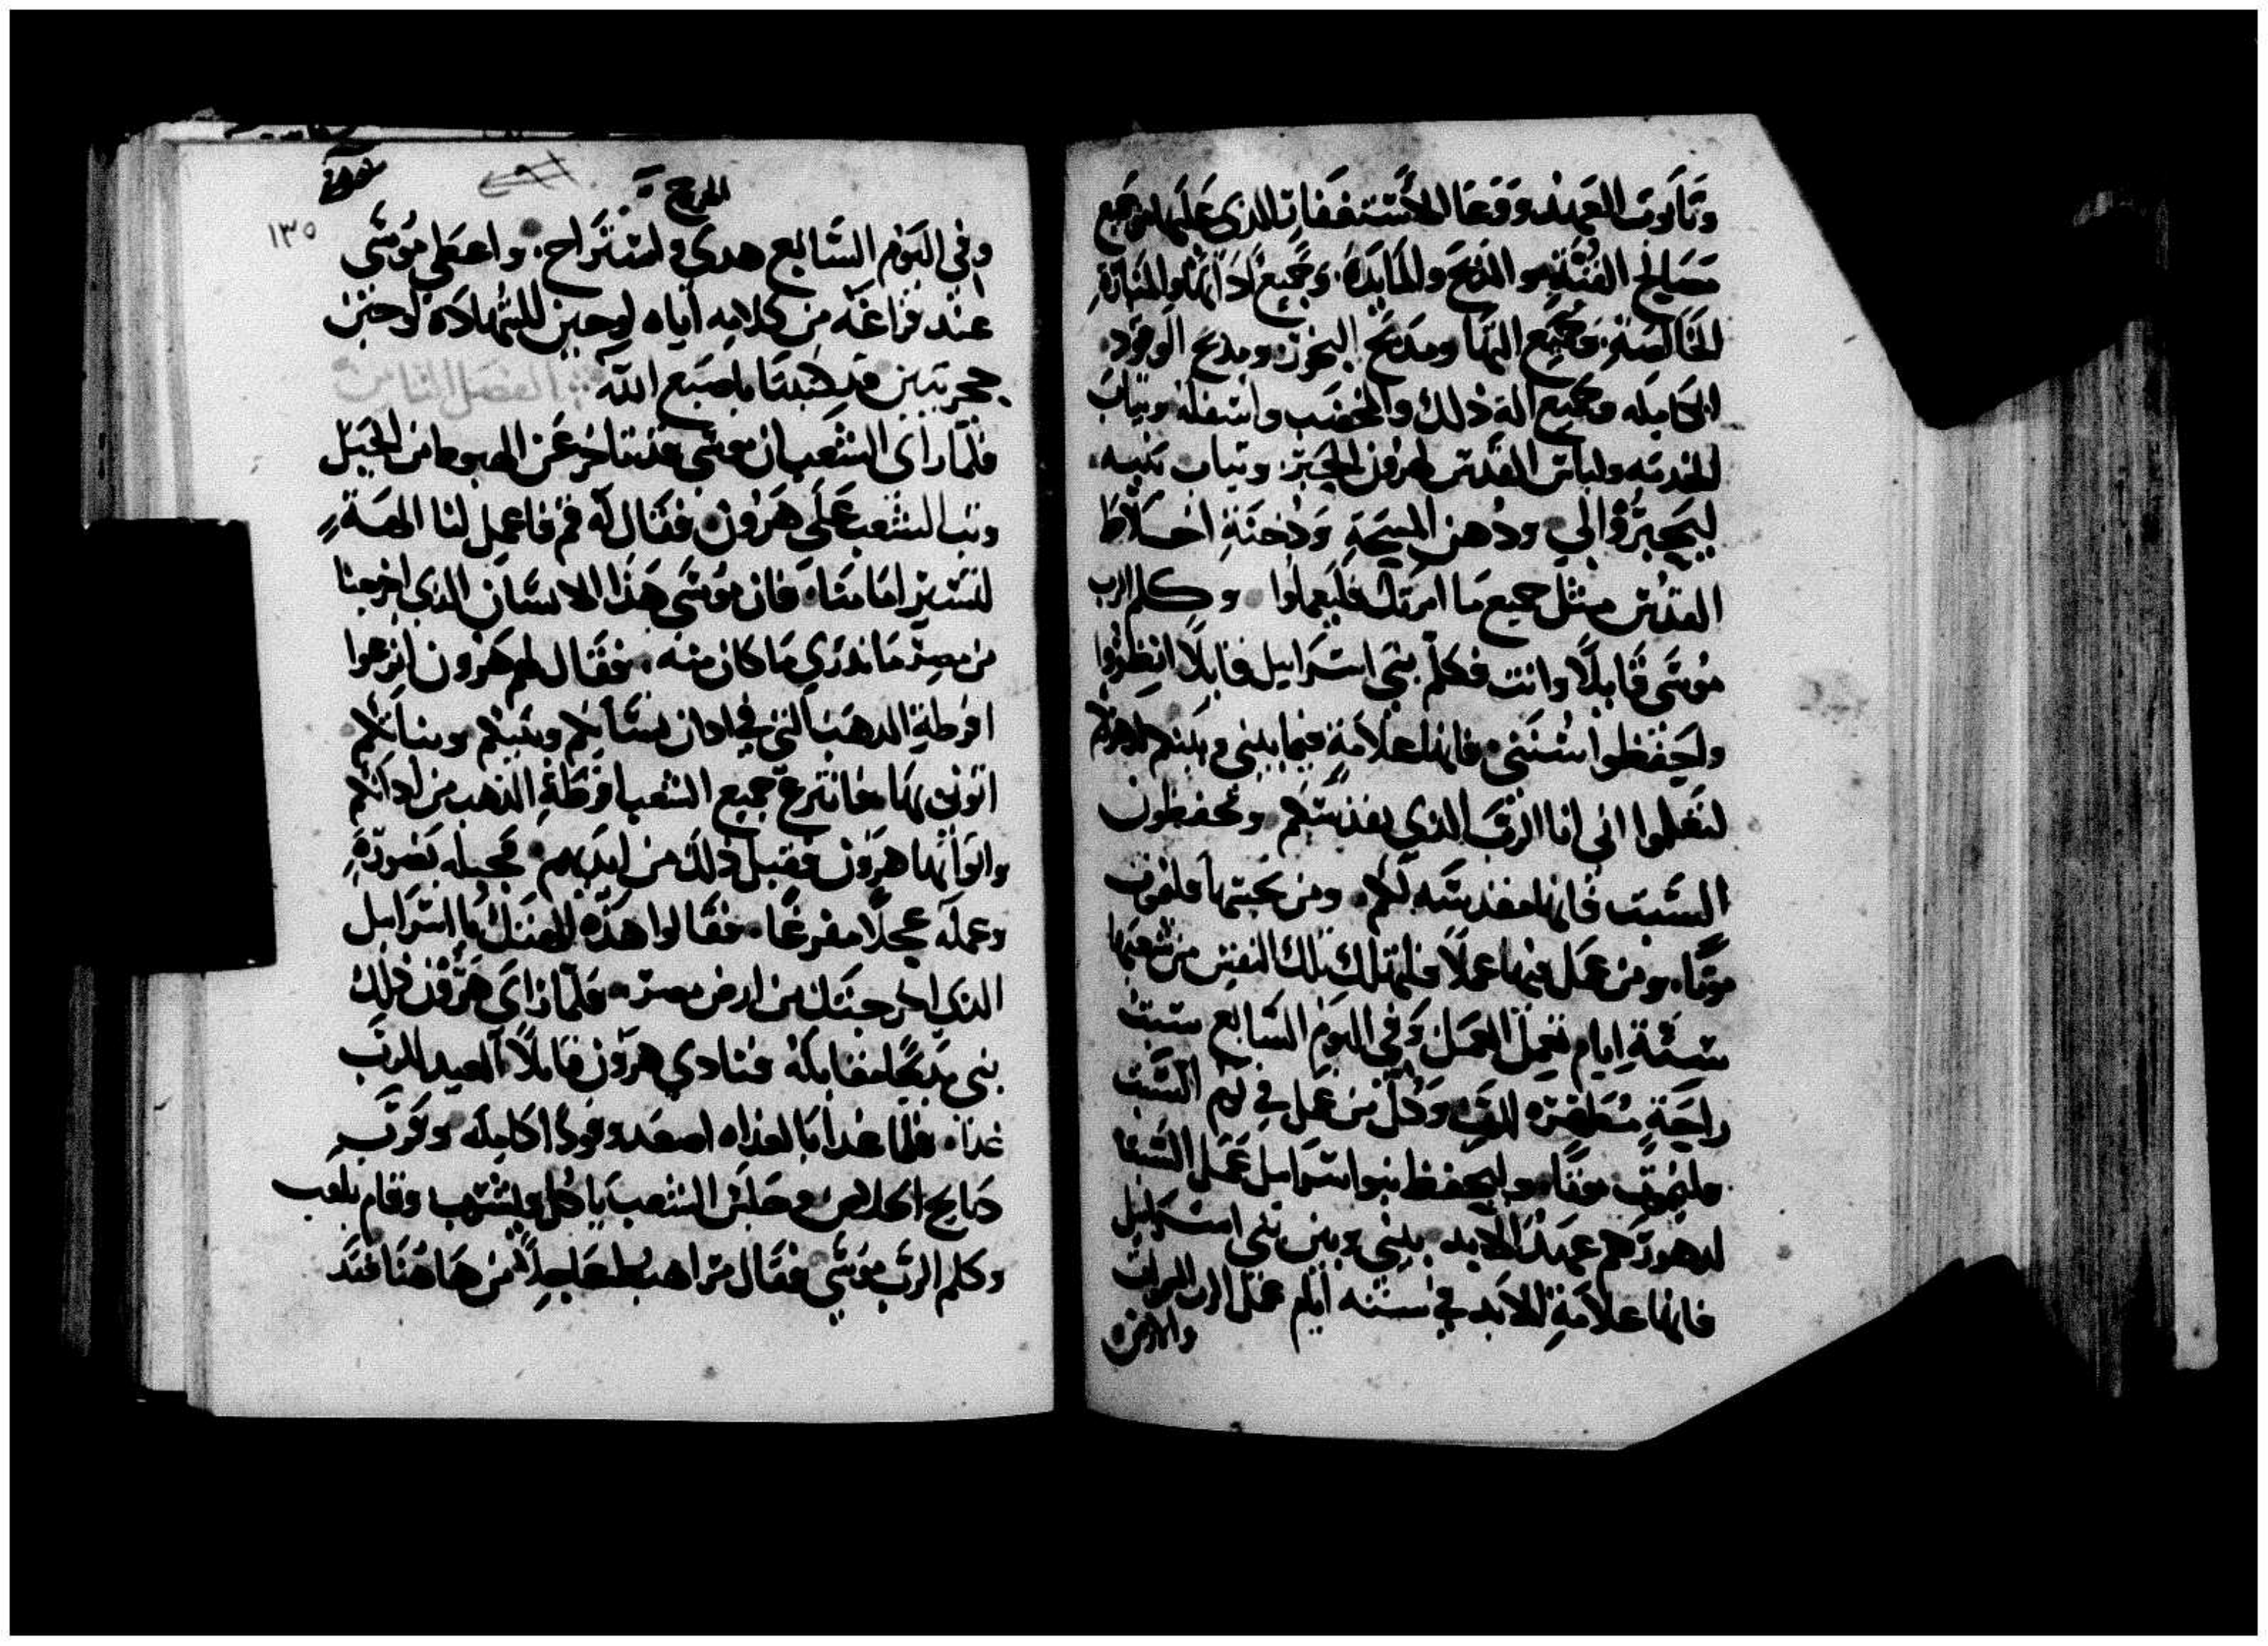 وتابوت العهد ووعا الاستغفار الذي عليها وجميع
مصالح القبة والمذبح والمايدة وجميع اداتها والمنارة
الخالصة وجميع التها ومذبح البخور ومذبح الوقود
الكامله وجميع الة ذلك والمخضب واسفله وثياب
الخدمه ولباس القدس لهرون الحبر وثياب بنيه
ليحبروا لي ودهن المسحة ودخنة اخلاط
القدس مثل جميع ما امرتك فليعملوا وكلم الرب
موسى قايلا وانت فكلم بني اسرايل قايلا انظروا
واحفظوا سنتي فانها علامة فيما بيني وبينكم لدهوركم
لتعلموا اني انا الرب الذي يقدسكم وتحفظون
السبت فانها مقدسه لكم ومن نجسها فليموت
موتا ومن عمل فيها عملا فلتهلك تلك النفس من شعبها
ستة ايام تعمل العمل وفي اليوم السابع سبت
راحة مطهرة للرب وكل من عمل في يوم السبت
فليموت موتا وليحفظ بنوا اسرايل عمل السبت
لدهورهم عهد الابد بيني وبين بني اسرايل
فانها علامة للابد في سته ايام عمل الرب السموات
والارض
الخروج
١٣٥
وفي اليوم السابع هدي واستراح واعطى موسى
عند فراغه من كلامه اياه لوحين للشهادة لوحين
حجريين قد كتبتا باصبع الله الفصل الثامن
فلما راى الشعب ان موسى قد تاخر عن الهبوط من الجبل
وثب الشعب على هرون فقال له قم فاعمل لنا الهة
لتسير امامنا فان موسى هذا الانسان الذي اخرجنا
من مصر ما ندري ما كان منه فقال لهم هرون انزعوا
اقرطة الدهب التي في ادان نسايكم وبنيكم وبناتكم
اتوني بها فانتزع جميع الشعب اقرطة الذهب من ادانهم
واتوا بها هرون فقبل ذلك من ايديهم فجبله بصورة
وعمله عجلا مفرغا فقالوا هذه الهتك يا اسرايل
الذي اخرجتك من ارض مصر فلما راى هرون ذلك
بنى مذبحا مقابله فنادي هرون قايلا العيد للرب
غدا فلما غدا بالغداه اصعد وقودا كامله وقرب
دبايح الخلاص وجلس الشعب ياكل ويشرب وقام يلعب
وكلم الرب موسى فقال سر اهبط عاجلا من هاهنا فقد